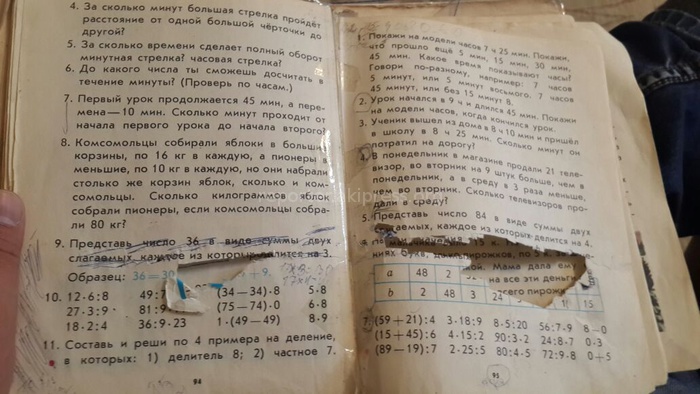 4. За сколько минут большая стрелка пройдёт
расстояние от одной большой чёрточки до
другой?
5. За сколько времени сделает полный оборот
минутная стрелка? часовая стрелка?
6. До какого числа ты сможешь досчитать в
течение минуты? (Проверь по часам.)
7. Первый урок продолжается 45 мин, а пере-
мена — 10 мин. Сколько минут проходит от
начала первого урока до начала второго?
8. Комсомольцы собирали яблоки в большие
корзины, по 16 кг в каждую, а пионеры в
меньшие, по 10 кг в каждую, но они набрали
столько же корзин яблок, сколько и ком-
сомольцы. Сколько килограммов яблок
собрали пионеры, если комсомольцы собра-
ли 80 кг?
9. Представь число 36 в виде суммы двух
слагаемых, каждое из которых делится на 3.
Образец: 36=30
10. 12·6:8 49:7 (34—34)·8 5·8
27·3:9 81:9 (75—74)·0 6·8
18·2:4 36:9·23 1·(49—49) 8·9
11. Составь и реши по 4 примера на деление,
в которых: 1) делитель 8; 2) частное 7.
94
1. Покажи на модели часов 7 ч 25 мин. Покажи,
что прошло ещё 5 мин, 15 мин, 30 мин,
45 мин. Какое время показывают часы?
Говори по-разному, например: 7 часов
5 минут, или 5 минут восьмого. 7 часов
45 минут, или без 15 минут 8.
2. Урок начался в 9 ч и длился 45 мин. Покажи
на модели часов, когда кончился урок.
3. Ученик вышел из дома в 8 ч 10 мин и пришёл
в школу в 8 ч 25 мин. Сколько минут он
потратил на дорогу?
4. В понедельник в магазине продали 21 теле-
визор, во вторник на 9 штук больше, чем в
понедельник, а в среду в 3 раза меньше,
чем во вторник. Сколько телевизоров про-
дали в среду?
5. Представь число 84 в виде суммы двух
слагаемых, каждое из которых делится на 4.
кой. Мама дала ему
на все эти деньги
всего пирожк
a 48 2
b 2 48 3 24 1 15
7. (59+21):4 3·18:9 8·5:20 56:7·9 8—0
(15+45):6 4·15:2 90:3·2 24:8·7 0·3
(89—19):7 2·25:5 80:4·5 72:9·8 0+5
95